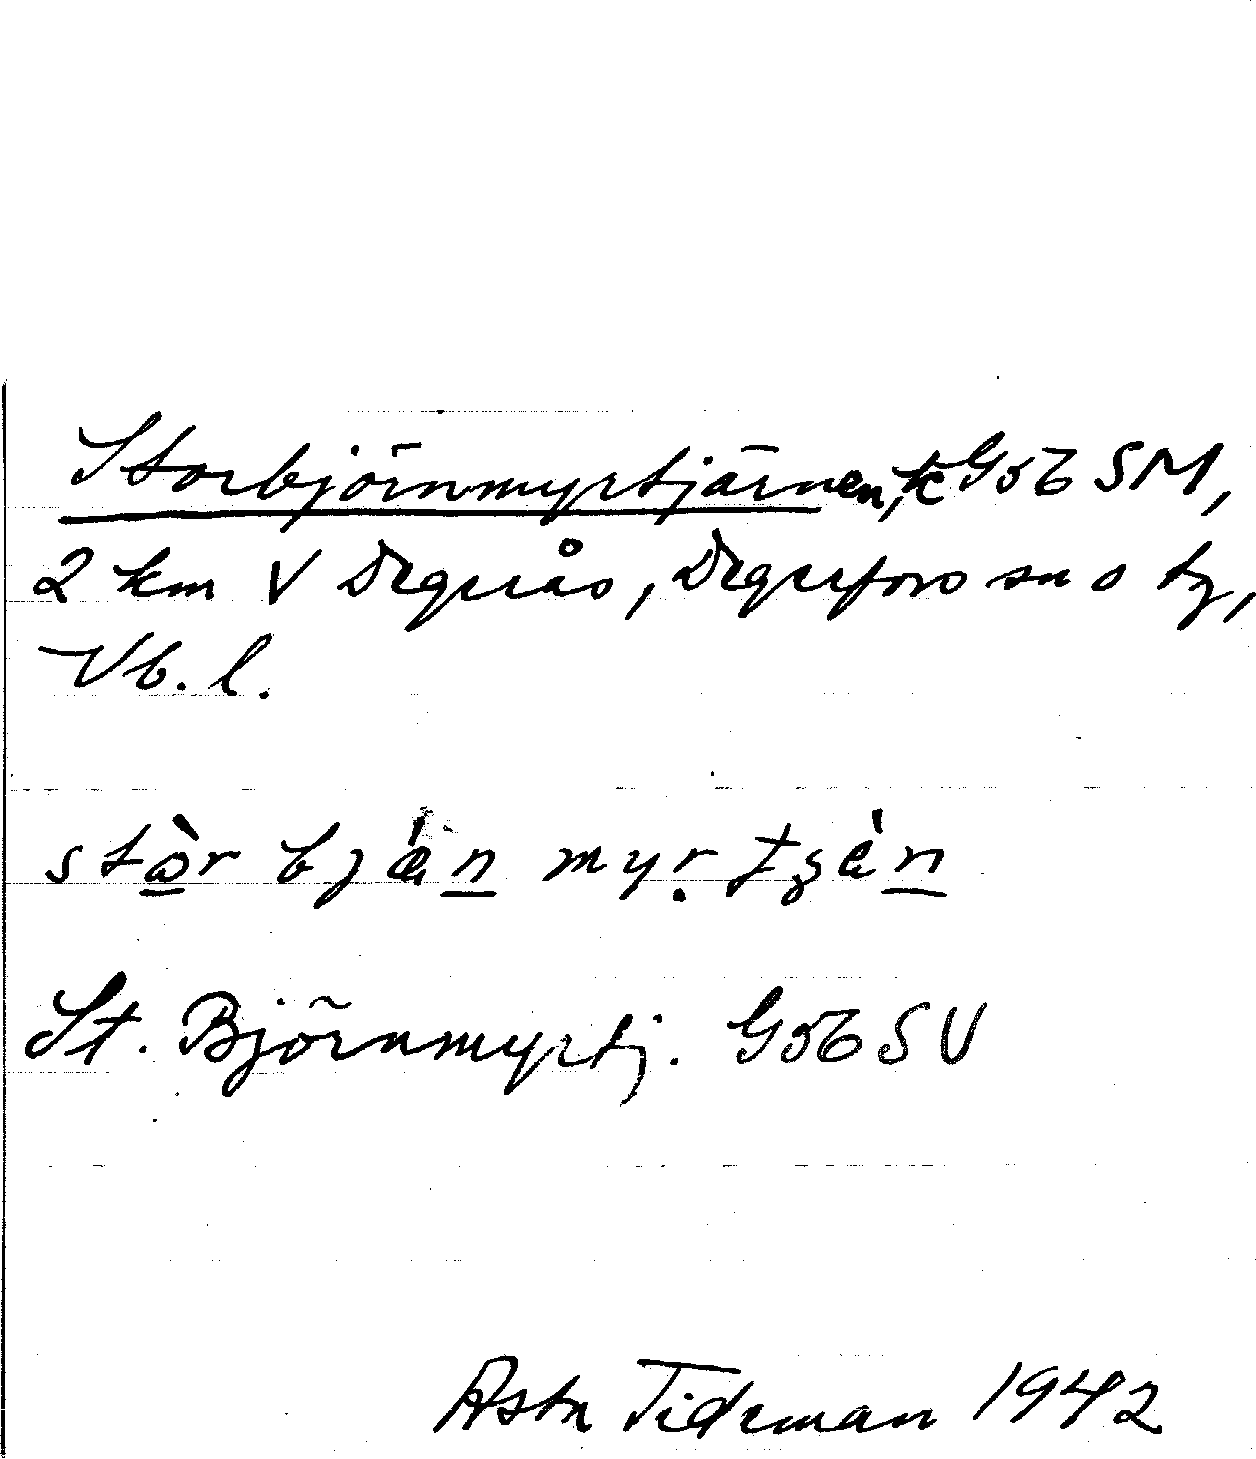 Storbjörnmyrtjärnen, k G56 SM,
2 km V Degerås, Degerfors sn o tg,
Vb. l.
stòr bjǽn myr tjèn
St. Björnmyrtj. G56 SV
Asta Tideman 1942